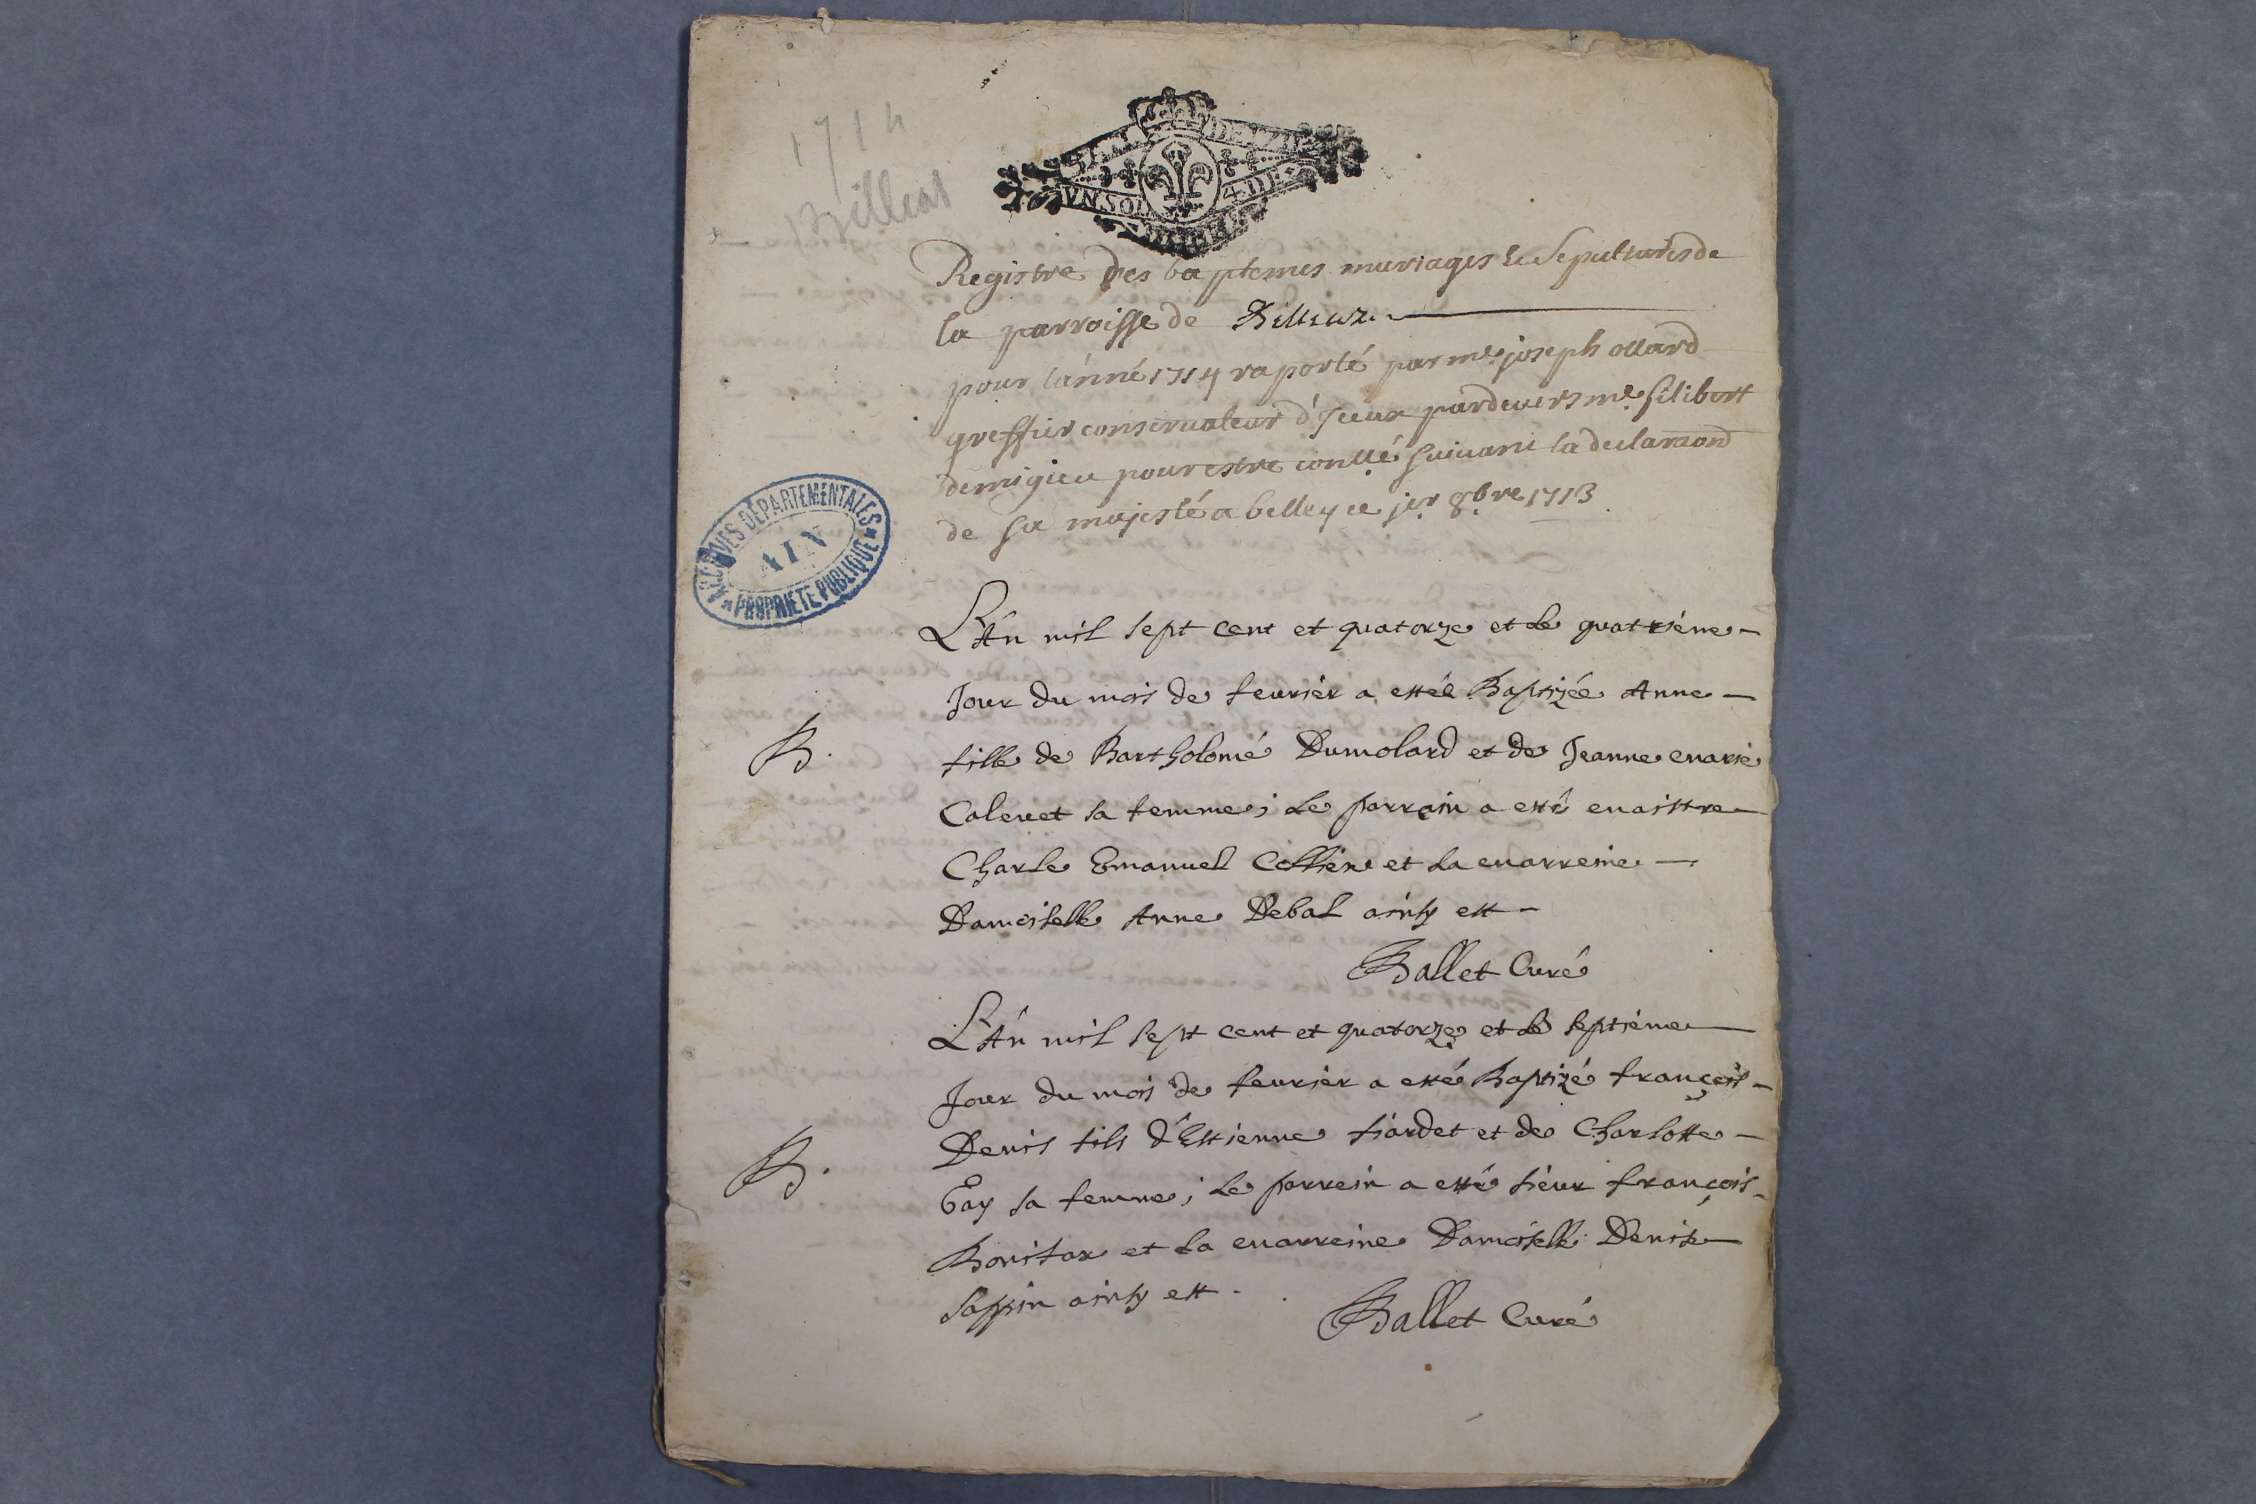 1714
Billieu
GEN DE
UN SOL 4 DE
Registre des baptemes mariages & Sepultures de
la parroisse de Billieux
pour lánné 1714 raporté par me. joseph ollard
greffier conservateur d'Jceux pardevers me. filibert
demigieu pour estre contté suivant la declaraond
de sa majesté a belley ce jer 8bre 1713
ARCHIVES DÉPARTEMENTALES
AIN
PROPRIÉTÉ PUBLIQUE
L'An mil sept cent et quatorze et le quatriéme
Jour du mois de feurier a estée Baptizée Anne
B.
fille de Bartholomé Dumolard et de Jeanne marie
Caleuet sa femme; Le parrain a esté maistre
Charle Emanuel et La marreine
Damoiselle Anne Debal ainsy est
Ballet Curé
L'An mil sept cent et quatorze et le septiéme
Jour du mois de feurier a esté Baptizé françois
Denis fils d'Estienne fiardet et de Charlotte
B.
Gay sa femme; Le parrein a esté sieur françois
Bonifax et La marreine Damoiselle Denise
Sappin ainsy est.
Ballet Curé